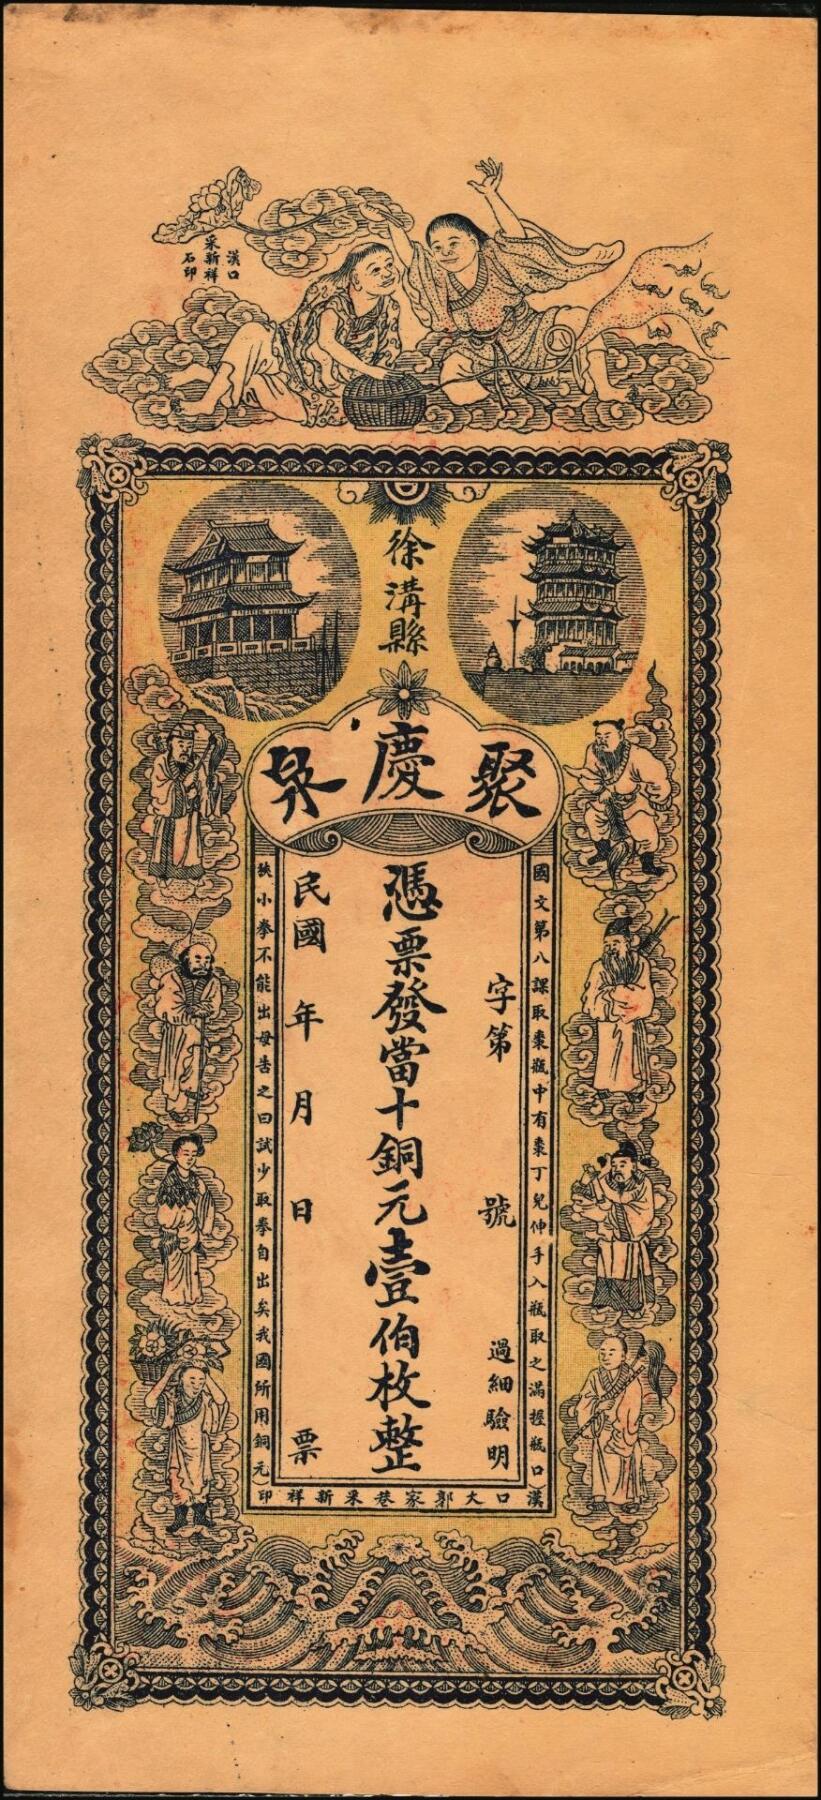 漢口
采新祥
石印
徐溝縣
聚慶泉
國文第八課取棗瓶中有棗丁兒伸手入瓶取之滿握瓶口
字第 號 過細驗明
憑票發當十銅元壹伯枚整
民國 年 月 日 票
狹小拳不能出母告之曰試少取拳自出矣我國所用銅元
漢口大郭家巷采新祥印